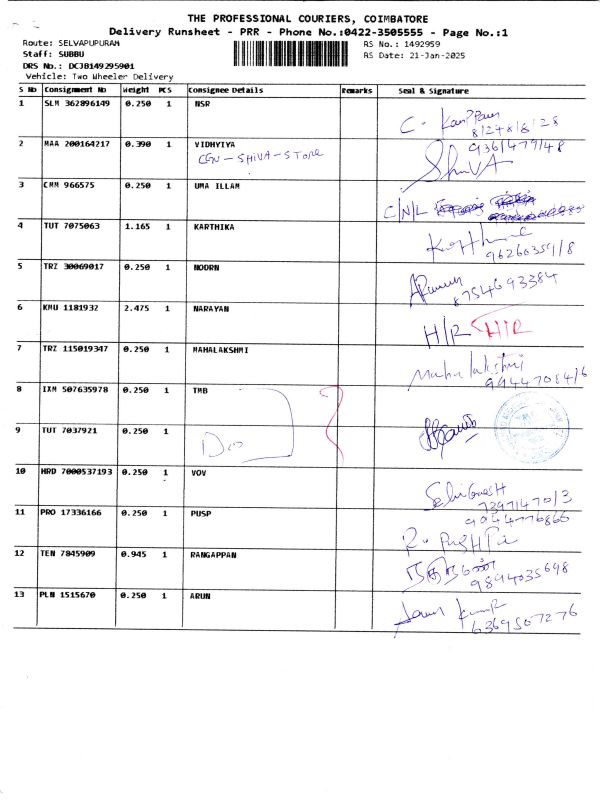 THE PROFESSIONAL COURIERS, COIMBATORE
Delivery Runsheet - PRR - Phone No.:0422-3505555 - Page No.:1
Route: SELVAPUPURAM RS No.: 1492959
Staff: SUBBU RS Date: 21-Jan-2025
DRS No.: DCJB149295901
Vehicle: Two Wheeler Delivery
S No Consignment No Weight PCS Consignee Details Remarks Seal & Signature
1 SLM 362896149 0.250 1 NSR
2 MAA 200164217 0.390 1 VIDHYIYA 9361479148
CEN-SHIVA-STORE SHIVA
3 CMM 966575 0.250 1 UMA ILLAM
C/N/L
4 TUT 7075063 1.165 1 KARTHIKA
5 TRZ 30069017 0.250 1 NOORN
8754693384
6 KMU 1181932 2.475 1 NARAYAN
H/R H/R
7 TRZ 115019347 0.250 1 MAHALAKSHMI
Mahalakshmi
8 IXM 507635978 0.250 1 TMB
9 TUT 7037921 0.250 1
Do
10 HRD 7000537193 0.250 1 VOV
11 PRO 17336166 0.250 1 PUSP
12 TEN 7845909 0.945 1 RANGAPPAN
9894035698
13 PLN 1515670 0.250 1 ARUN
6369507276